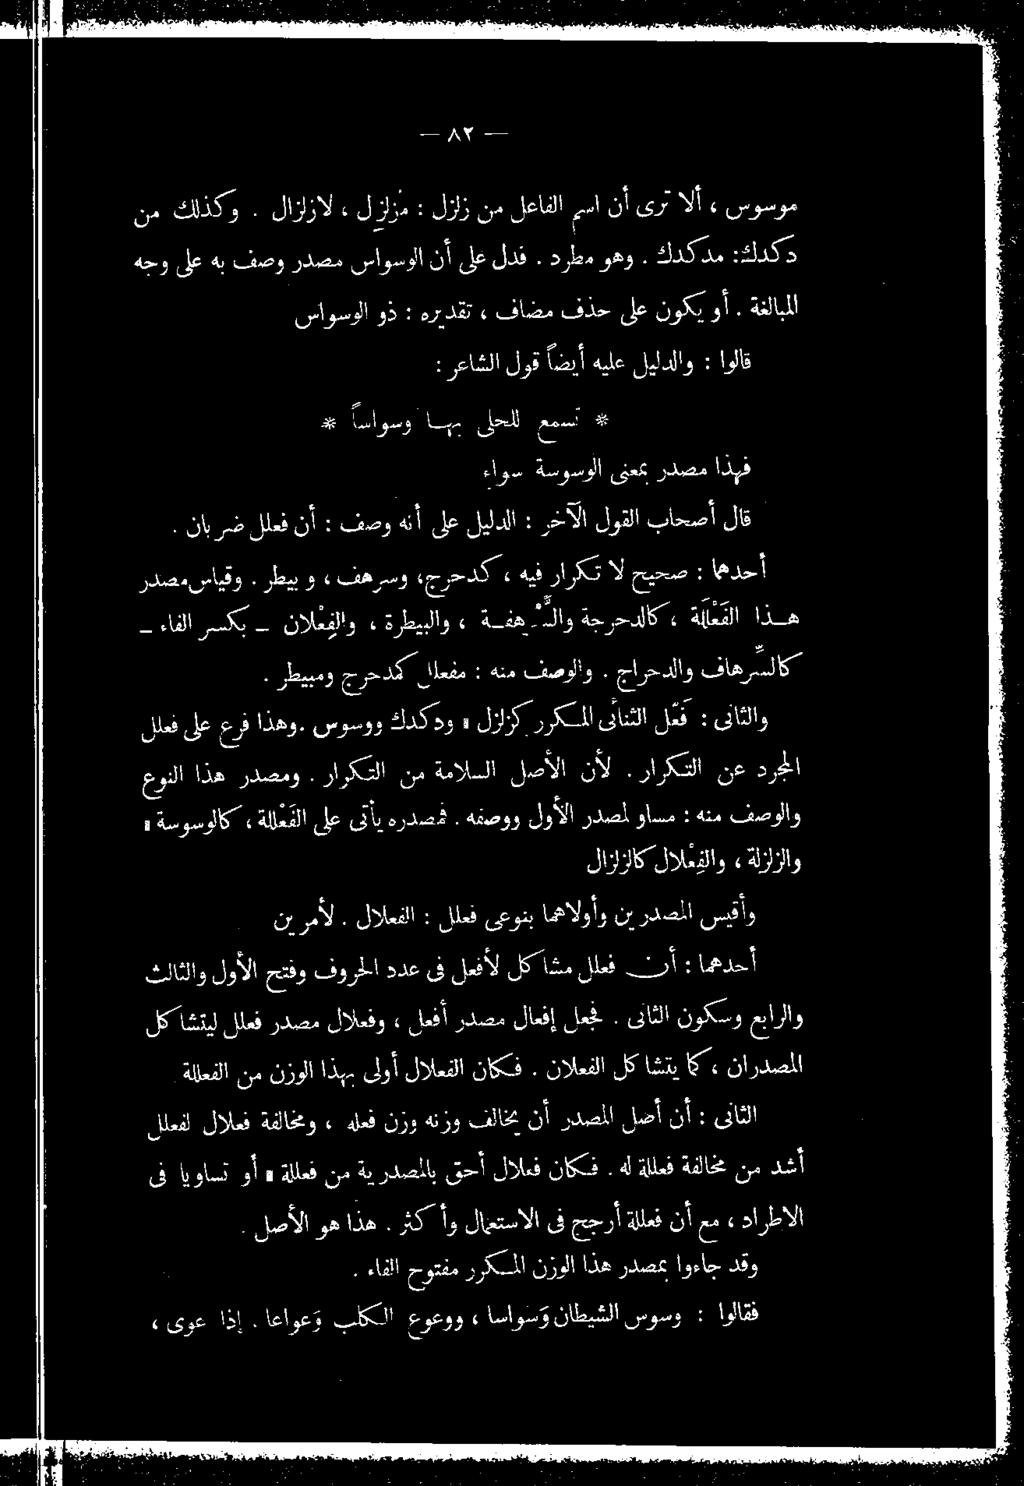 — ٨٢ —
موسوس ، ألا ترى أن اسم الفاعل من زلزل : مُزلزِل ، لازلزال . وكذلك من
دكدك: مدكدك . وهو مطرد . فدل على أن الوسواس مصدر وصف به على وجه
المبالغة . أو يكون على حذف مضاف ، تقديره : ذو الوسواس
قالوا : والدليل عليه أيضاً قول الشاعر :
* تسمع للحلى بهـا وسواساً *
فهذا مصدر بمعنى الوسوسة سواء
قال أصحاب القول الآخر : الدليل على أنه وصف : أن فعلل ضربان .
أحدهما : صحيح لا تكرار فيه ، كدحرج، وسرهف ، و بيطر . وقياس مصدر
هـذا الفَعْللة ، كالدحرجة والسَّرْهفـة ، والبيطرة ، والفِعْلان _ بكسر الفاء _
كالسِّرهاف والدحراج . والوصف منه : مفعلل كمدحرج ومبيطر .
والثانى : فَعَّل الثنائى المكرر كزلزل ، ودكدك ووسوس . وهذا فرع على فعلل
المجرد عن التكرار . لأن الأصل السلامة من التكرار . ومصدر هذا النوع
والوصف منه : مساو لمصدر الأول ووصفه . فمصدره يأتى على الفَعْللة ، كالوسوسة ،
والزلزلة ، والفِعْلال كالزلزال
وأقيس المصدرين وأولاهما بنوعى فعلل : الفعلال . لأمرين
أحدهما : أن فعلل مشاكل لأفعل فى عدد الحروف وفتح الأول والثالث
والرابع وسكون الثانى . فجعل إفعال مصدر أفعل ، وفعلال مصدر فعلل ليتشاكل
المصدران ، كما يتشاكل الفعلان . فكان الفعلال أولى بهذا الوزن من الفعللة
الثانى : أن أصل المصدر أن يخالف وزنه وزن فعله ، ومخالفة فعلال لفعلل
أشد من مخالفة فعللة له . فكان فعلال أحق بالمصدرية من فعللة ، أو تساويا فى
الاطراد ، مع أن فعللة أرجح فى الاستعمال وأكثر . هذا هو الأصل .
وقد جاءوا بمصدر هذا الوزن المكرر مفتوح الفاء .
فقالوا : وسوس الشيطان وَسواسا ، ووعوع الكلب وَعواعا . إذا عوى ،